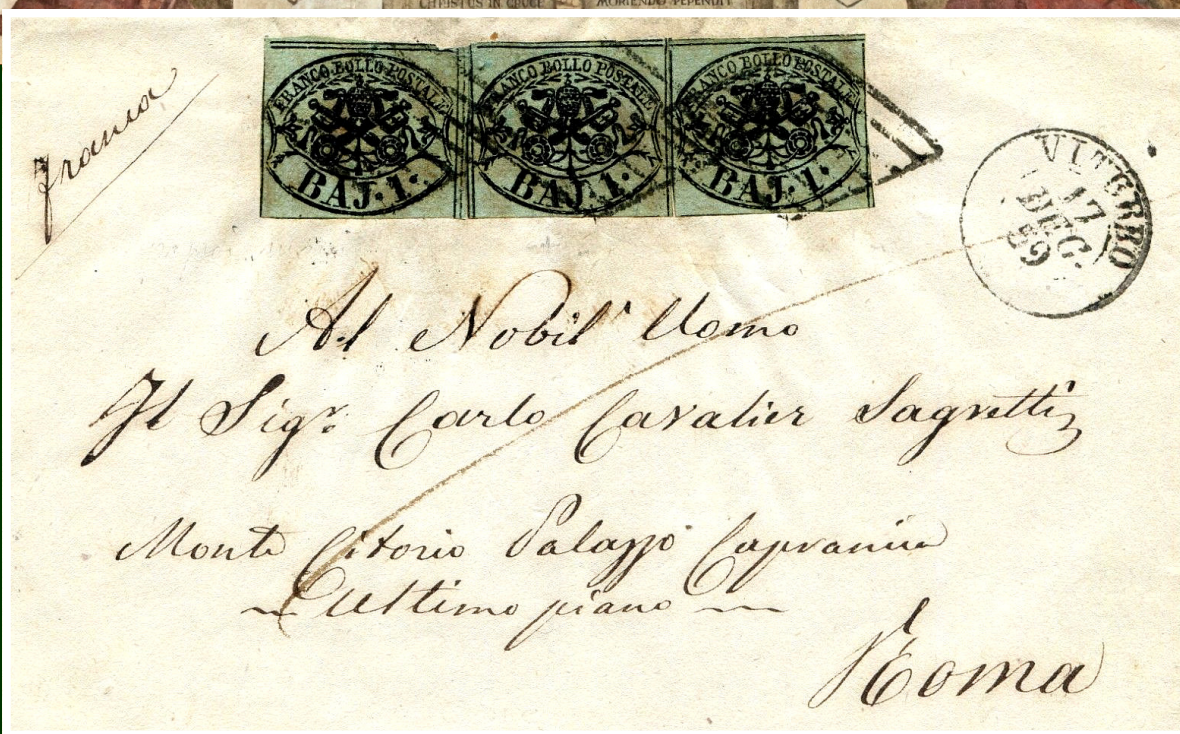 CHRISTUS IN CRUCE MORIENDO PEPENDIT
FRANCO BOLLO POSTALE
BAJ. 1.
FRANCO BOLLO POSTALE
BAJ. 1.
FRANCO BOLLO POSTALE
BAJ. 1.
Franca
VITERBO
17
DEC.
59
Al Nobil' Uomo
Il Sigr. Carlo Cavalier Sagretti
Monte Citorio Palazzo Capranica
Ultimo piano
Roma